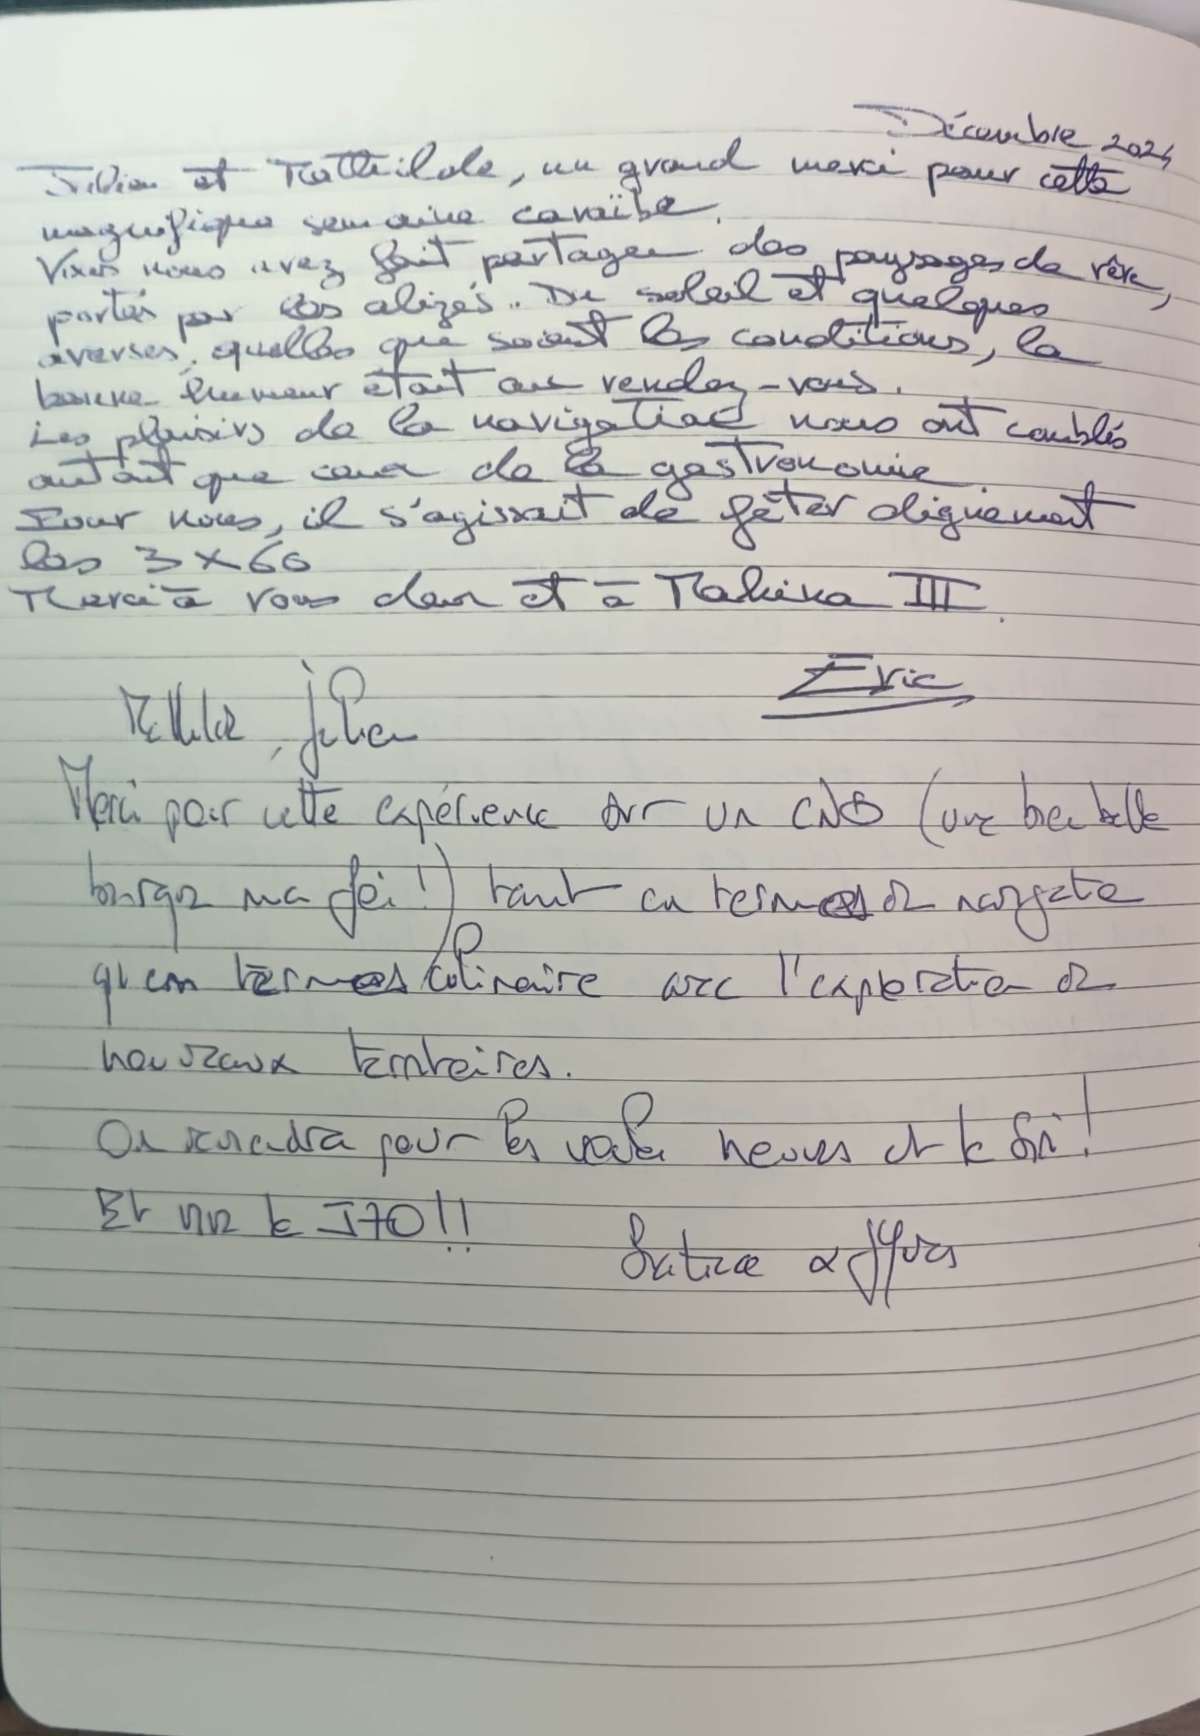 Décembre 2024
Julien et Mathilde, un grand merci pour cette
magnifique semaine caraïbe.
Vous nous avez fait partager des paysages de rêve,
portés par les alizés. Du soleil et quelques
averses, quelles que soient les conditions, la
bonne humeur était au rendez-vous.
Les plaisirs de la navigation nous ont comblés
autant que ceux de la gastronomie
Pour nous, il s'agissait de fêter dignement
les 3 x 60
Merci à vous deux et à Makena III.
Eric
Mathilde, Julien
Merci pour cette expérience sur un CNB (une bien belle
barque ma foi!) tant en termes de navigation
qu'en termes culinaire avec l'exploration de
nouveaux territoires.
On reviendra pour les voiles neuves et le
Et vive le J70!!
& JYves